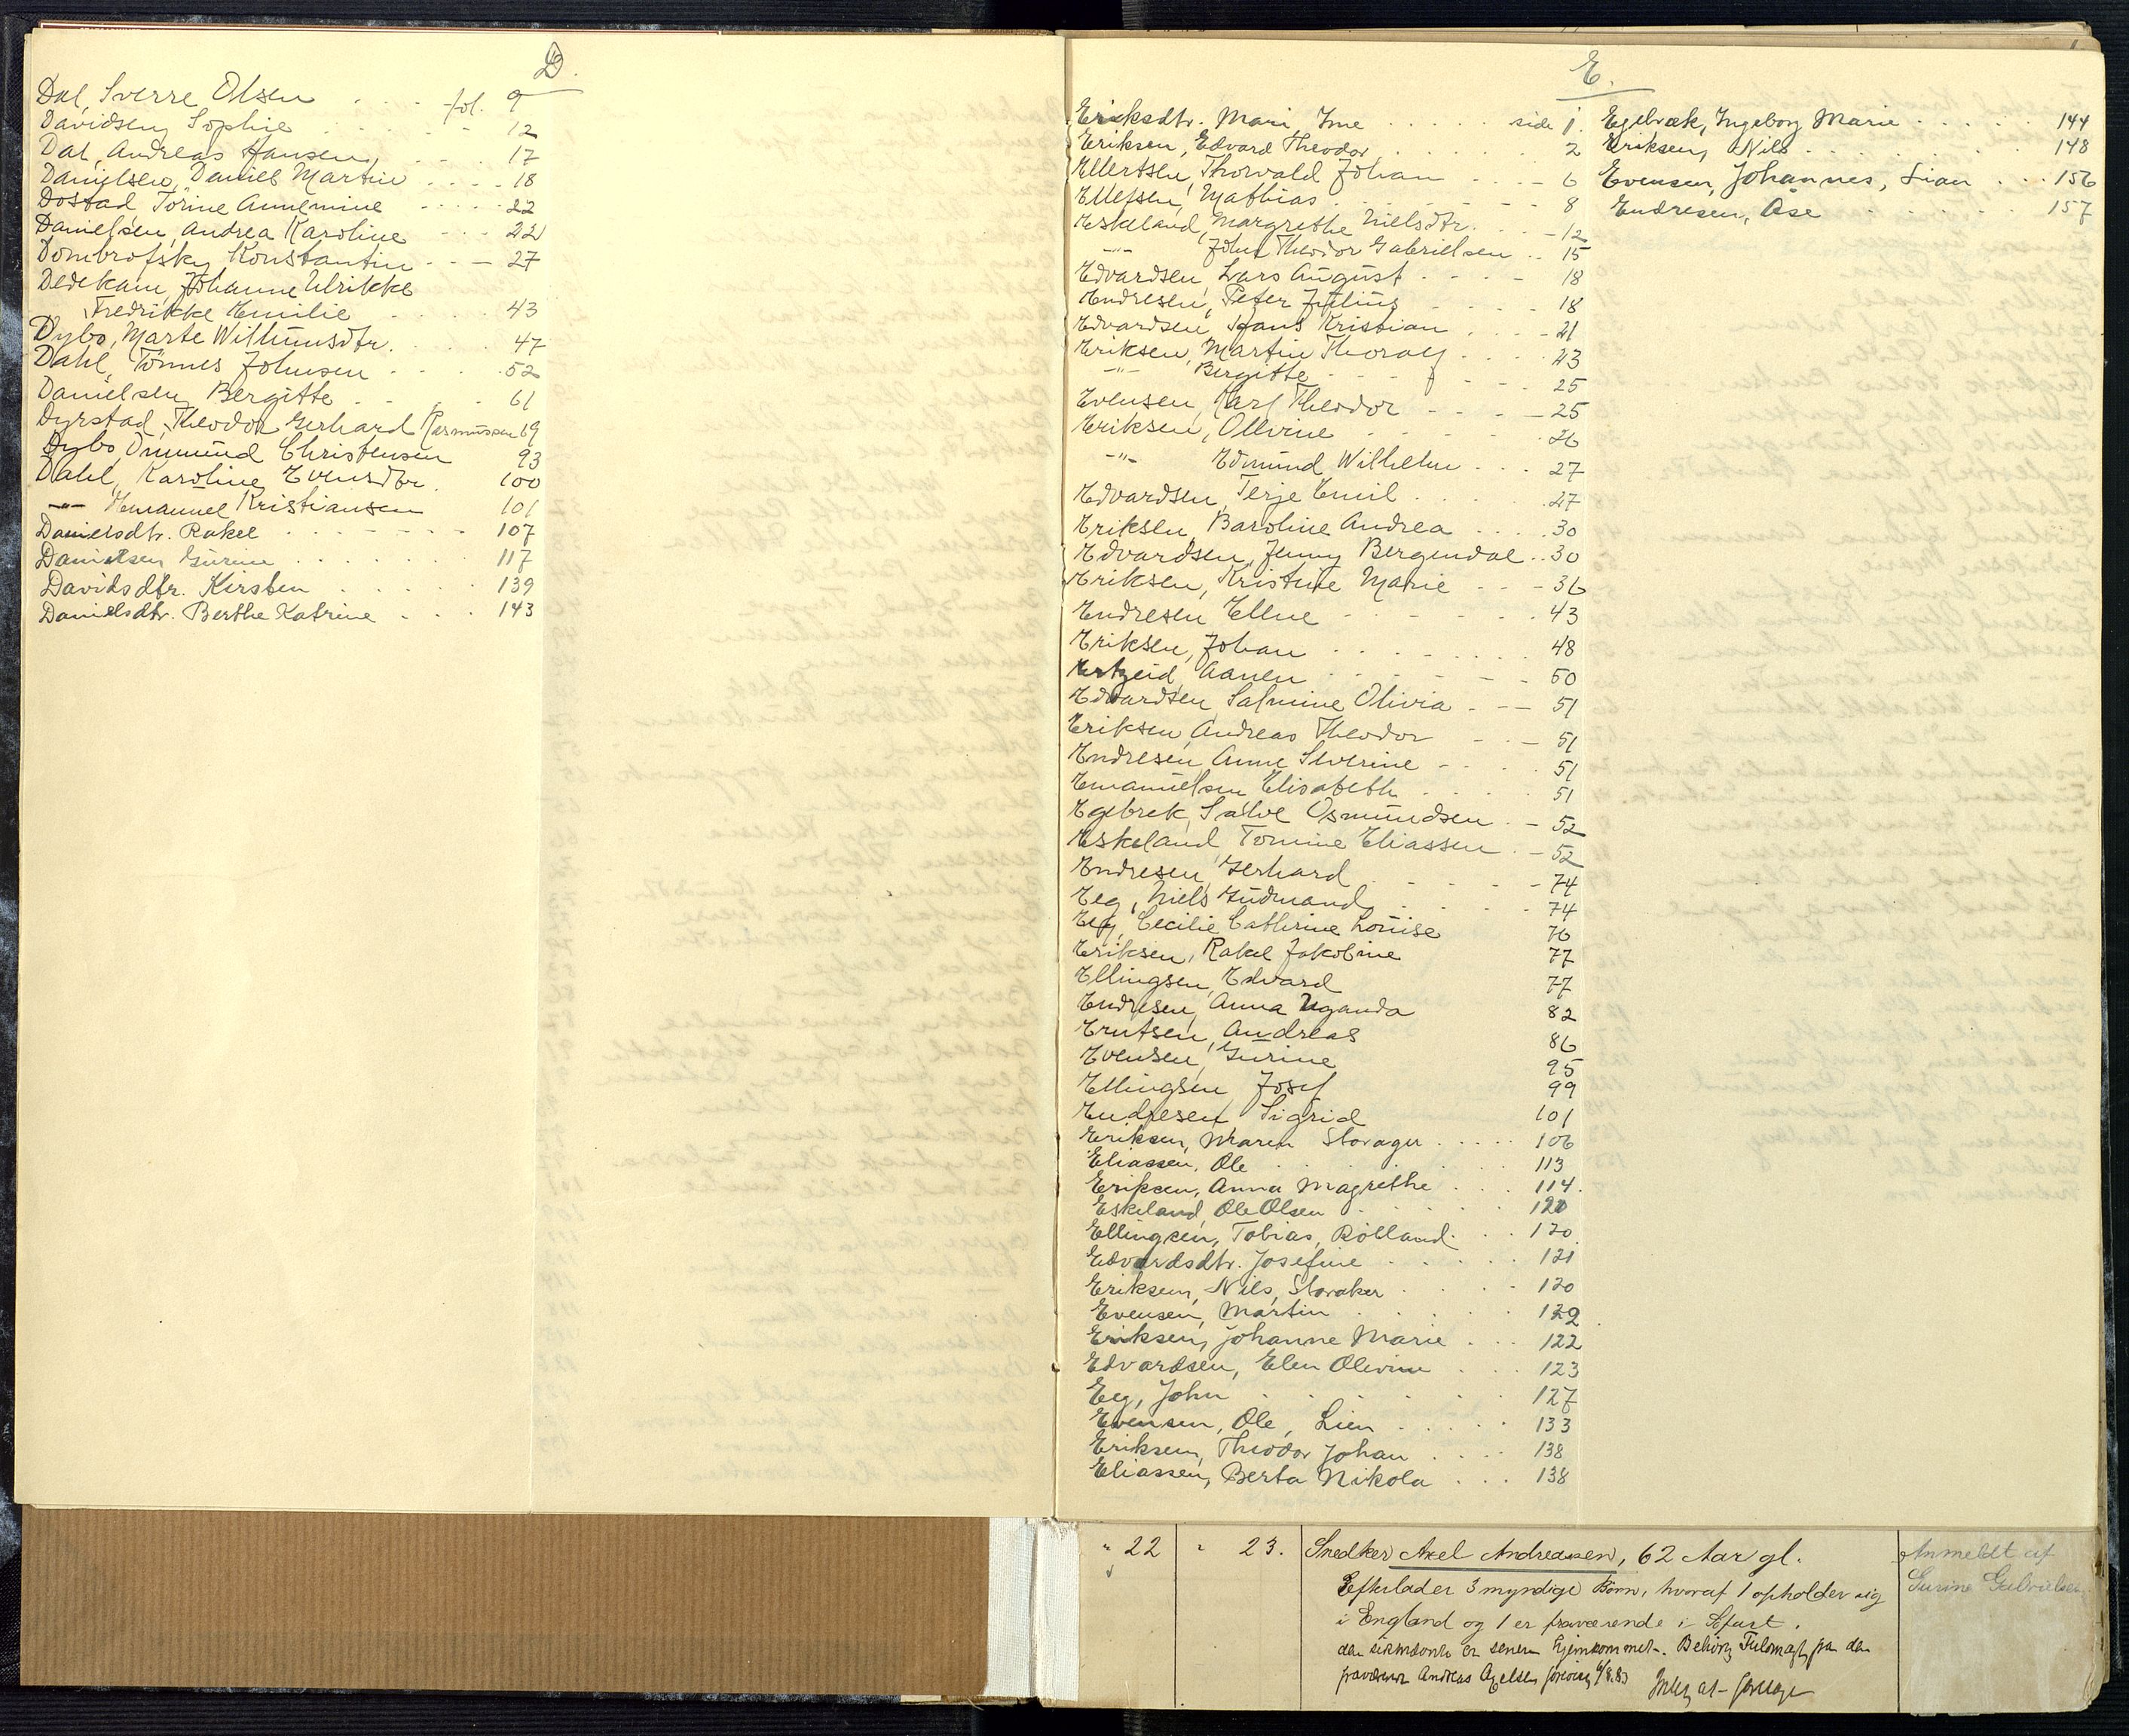 D.
Dal, Sverre Olsen . . . fol. 9
Davidsen, Sophie . . . 12
Dal, Andreas Hansen, . . . 17
Danielsen, Daniel Martin . . . 18
Dostad Torine Annemine . . . 22
Danielsen, Andrea Karoline . . . 22
Dombrofsky Konstantin . . . 27
Dedekam, Johanne Ulrikke
Fredrikke Emilie . . . 43
Dybo, Marte Wilhumsdtr. . . 47
Dahl, Tönnes Johnsen . . . 52
Danielsen, Bergitte . . . 61
Dyrstad, Theodor Gerhard Rasmussen 69
Dybo, Omund Christensen 93
Dahl, Karoline Evensdtr. 100
-"- Emanuel Kristiansen 101
Danielsdtr. Rakel . . . 107
Danielsen Gurine . . . 117
Davidsdtr. Kirsten . . . 139
Danielsdtr. Berthe Katrine . . . 143
E.
Eriksdtr. Mari, Ime . . . side 1.
Eriksen, Edvard Theodor . . . 2
Ellertsen, Thorvald Johan . . . 6
Ellefsen, Mathias . . . 8
Eskeland, Margrethe Nielsdtr. . . 12
-"- John Theodor Gabrielsen . . 15
Edvardsen, Lars August . . . 18
Endresen, Peter Julius . . . 18
Edvardsen, Hans Kristian . . . 21
Eriksen, Martin Thoralf . . . 23
-"- Bergitte . . . 25
Evensen, Karl Theodor . . . 25
Eriksen, Ollvine . . . 26
-"- Edmund Wilhelm . . . 27
Edvardsen, Terje Emil . . . 27
Eriksen, Baroline Andrea . . . 30
Edvardsen, Jenny Bergendal . . 30
Eriksen, Kristine Marie . . . 36
Endresen Elline . . . 43
Eriksen, Johan . . . 48
Ertzeid, Aanen . . . 50
Edvardsen Salmine Olivia . . . 51
Eriksen, Andreas Theodor . . . 51
Endresen, Anne Severine . . . 51
Emanuelsen Elisabeth . . . 51
Egebrek, Salve Osmundsen . . 52
Eskeland Tomine Eliassen . . 52
Endresen, Gerhard . . . 74
Eeg, Niels Gudmand, . . . 74
Eeg, Cecilie Cathrine Louise 76
Eriksen, Rakel Jakobine 77
Ellingsen, Edvard 77
Endresen, Anna Uganda 82
Erntsen, Andreas 86
Evensen, Gurine 95
Ellingsen, Josef 99
Endresen, Sigrid 101
Eriksen, Maren Stovager . . . 106
Eliassen, Ole . . . 113
Eriksen, Anna Magrethe . . . 114.
Eskeland, Ole Olsen . . . 120
Ellingsen, Tobias, Rölland . . 120.
Edvardsdtr. Josefine . . . 121
Eriksen, Nils, Stovaker . . . 120
Evensen, Martin . . . 122
Eriksen, Johanne Marie . . . 122
Edvardsen, Elen Olevine . . . 123
Eeg, John . . . 127
Evensen, Ole, Lien . . . 133
Eriksen, Theodor Johan . . . 138
Eliassen, Berta Nikola . . . 138
Egebræk, Ingeborg Marie . . . 144
Eriksen, Nils . . . 148
Evensen, Johannes, Lian . . . 156
Endresen, Åse . . . 157
" 22 " 23. Snedker Axel Andreassen, 62 Aar gl.
Efterlader 3 myndige Børn, hvoraf 1 opholder sig
i England og 1 er fraværende i Søfart.
er senere hjemkommet. Behørig Fuldmagt fra den
Andreas Axelsen
Anmeldt af
Gurine Gabrielsen.